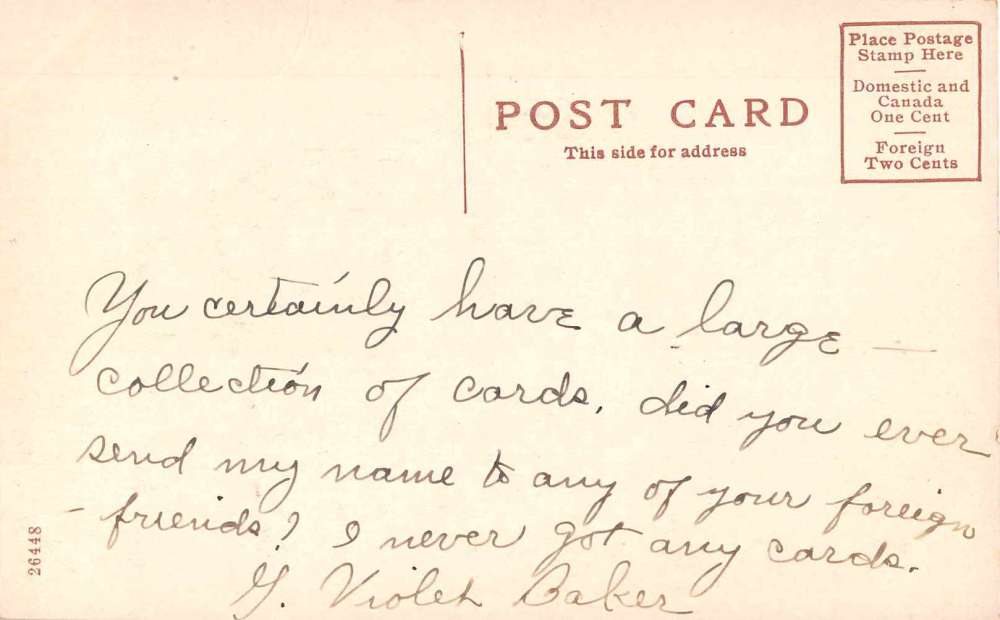 POST CARD
This side for address
Place Postage
Stamp Here
Domestic and
Canada
One Cent
Foreign
Two Cents
You certainly have a large
collection of cards, did you ever
send my name to any of your foreign
- friends? I never got any cards.
G. Violet Baker
26448